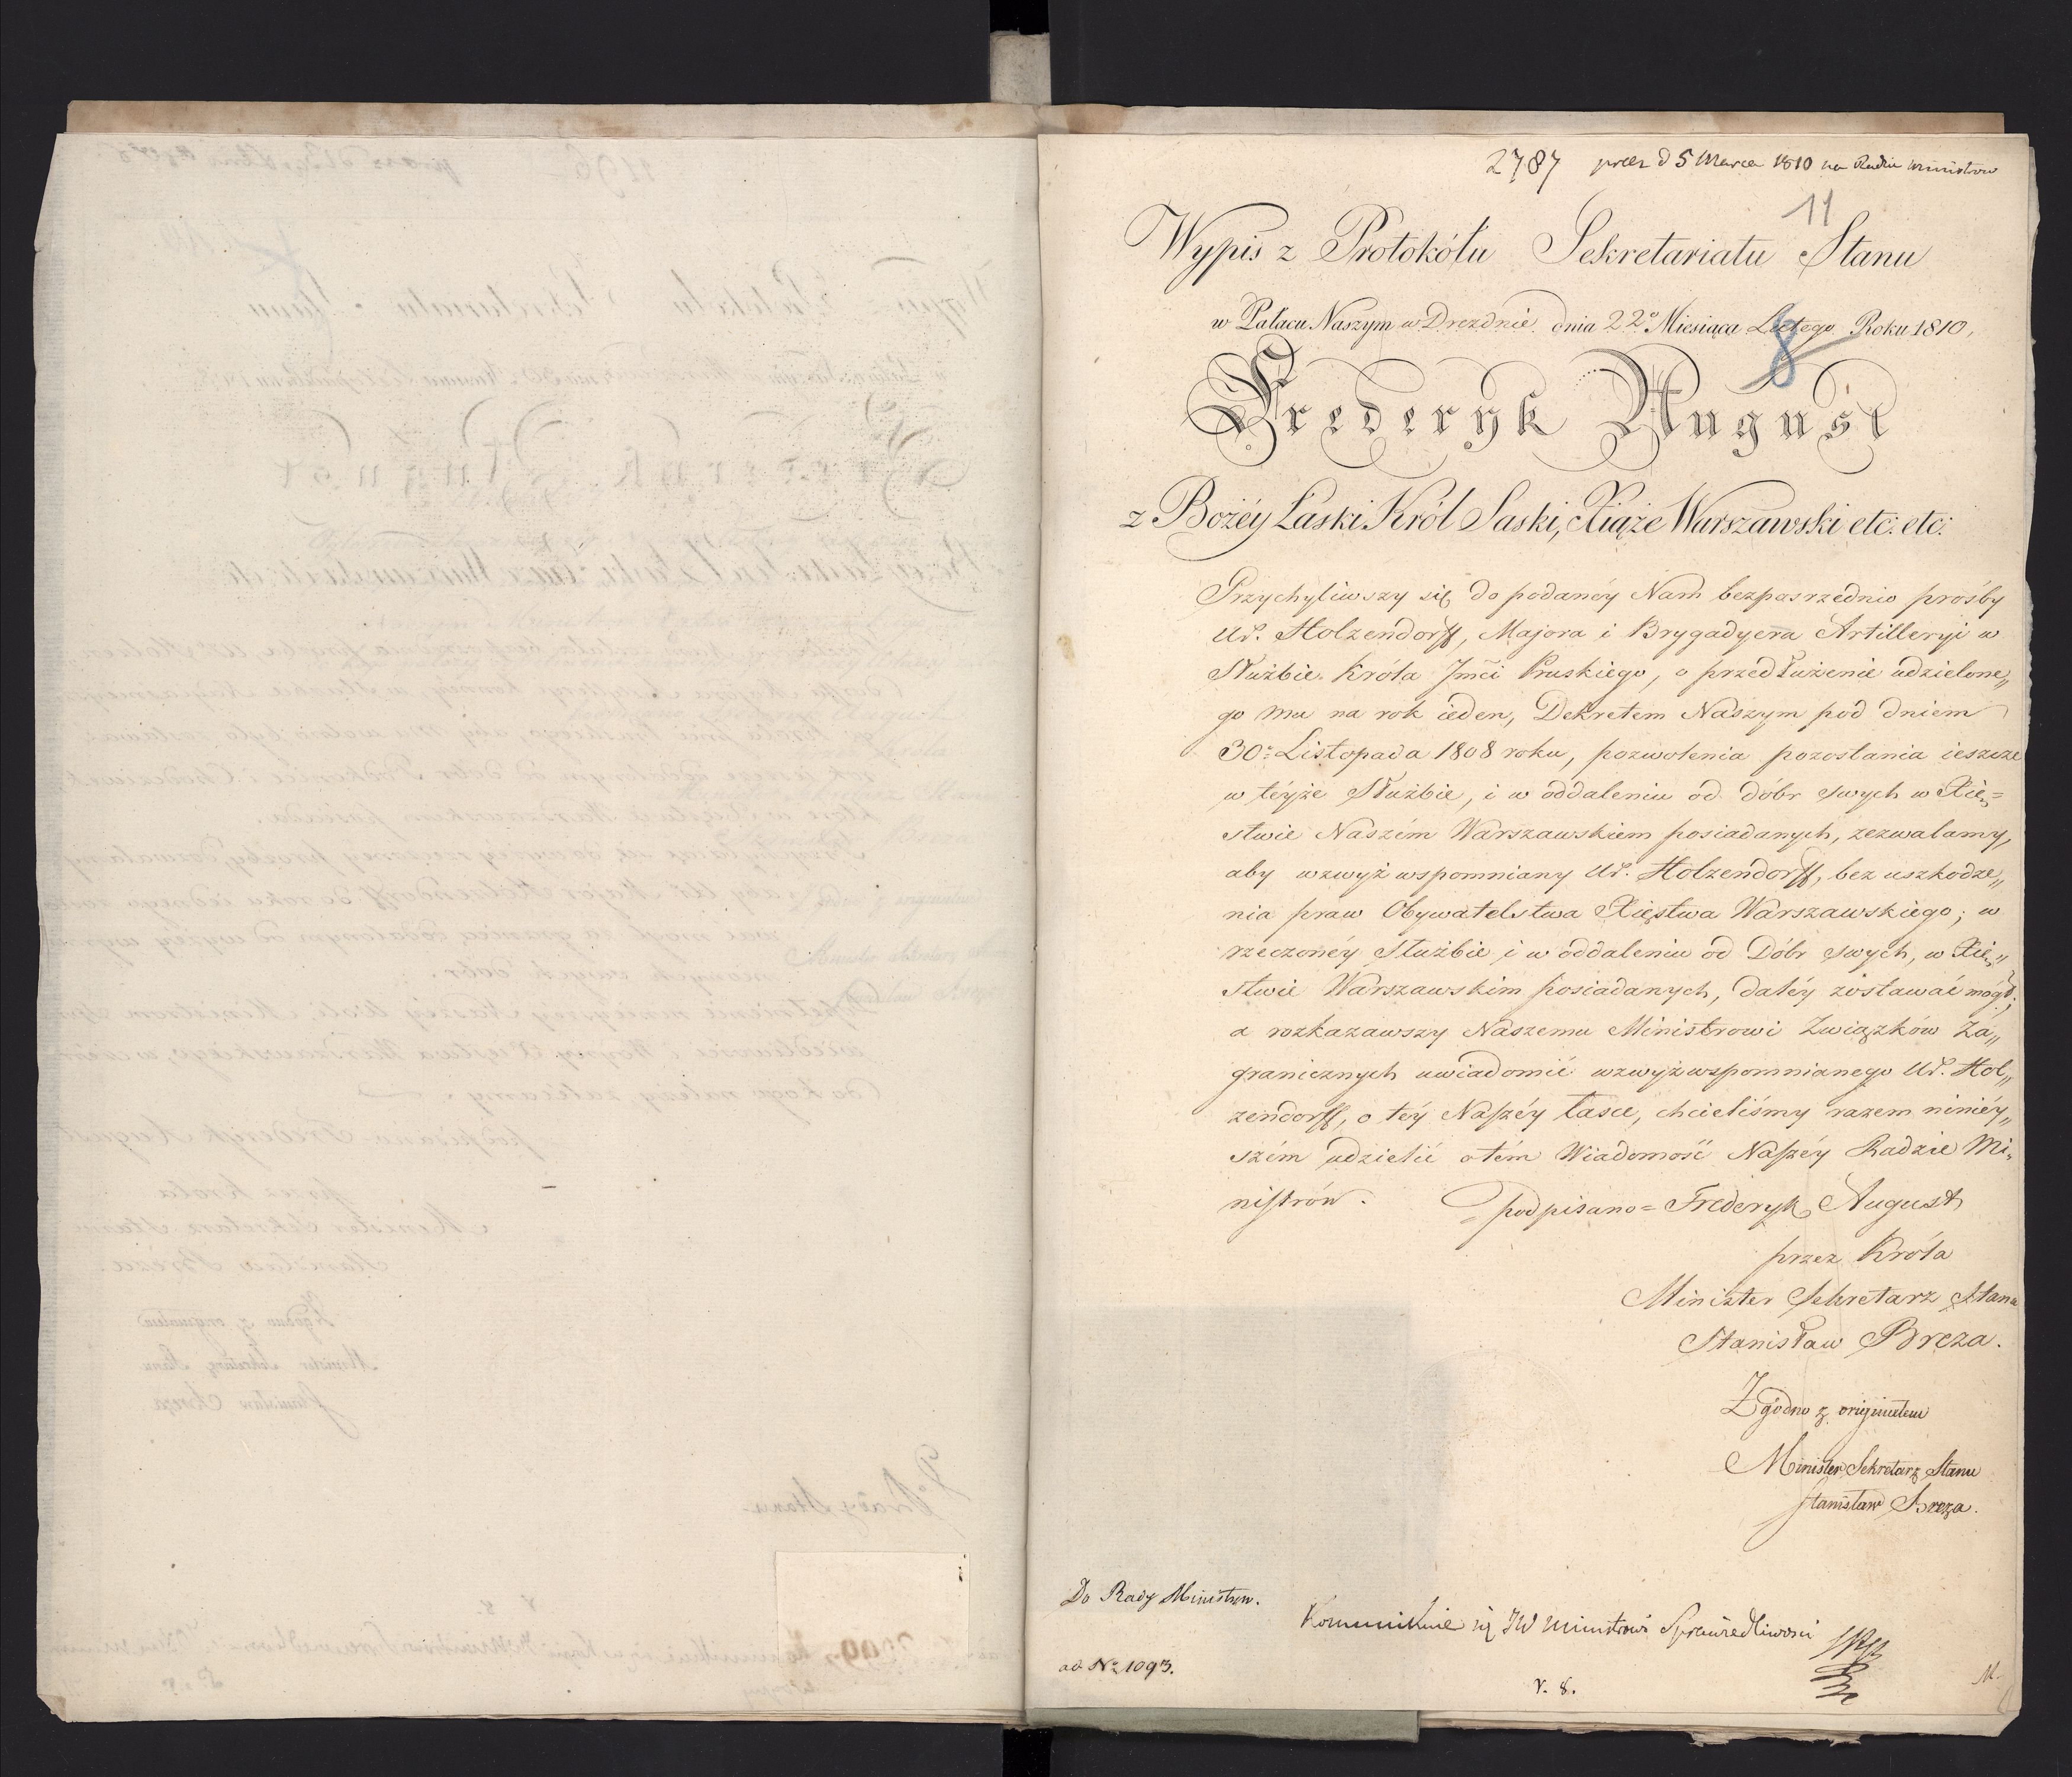 2787 prez d 5 Marca 1810 na Radzie Ministrow
11
Wypis z Protokółu Sekretariatu Stanu
w Pałacu Naszym w Dreznie dnia 22º Miesiąca Lutego Roku 1810,
8
Frederyk August
z Bożéy Łaski Król Saski, Xiąże Warszawski etc: etc:
Przychyliwszy się do podanéy Nam bezpośrzednio prośby
Ur. Holzendorff, Majora i Brygadyera Artilleryi w
Służbie Króla Jmci Pruskiego, o przedłużenie udzielone„
go mu na rok ieden, Dekretem Naszym pod dniem
30º Listopada 1808 roku, pozwolenia pozostania ieszcze
w téyże Służbie, i w oddaleniu od dóbr swych w Xię=
stwie Naszém Warszawskiem posiadanych, zezwalamy,
aby wzwyż wspomniany Ur. Holzendorff, bez uszkodze„
nia praw Obywatelstwa Xięstwa Warszawskiego; w
rzeczonéy Służbie i w oddaleniu od Dóbr swych, w Xię„
stwie Warszawskim posiadanych, daléy zostawać mógł;
a rozkazawszy Naszemu Ministrowi Związków Za„
granicznych uwiadomić wzwyżwspomnianego Ur. Hol„
zendorff, o téy Naszéy łasce, chcieliśmy razem niniéy„
szém udzielić o tém Wiadomość Naszéy Radzie Mi„
nistrów. = podpisano = Frederyk August
przez Króla
Minister Sekretarz Stanu
Stanisław Breza.
Zgodno z originałem
Minister Sekretarz Stanu
Stanisław Breza.
Do Rady Ministrow.
Kommunikuie się JW Ministrowi Sprawiedliwosci
ad Nº 1093.
V. 8.